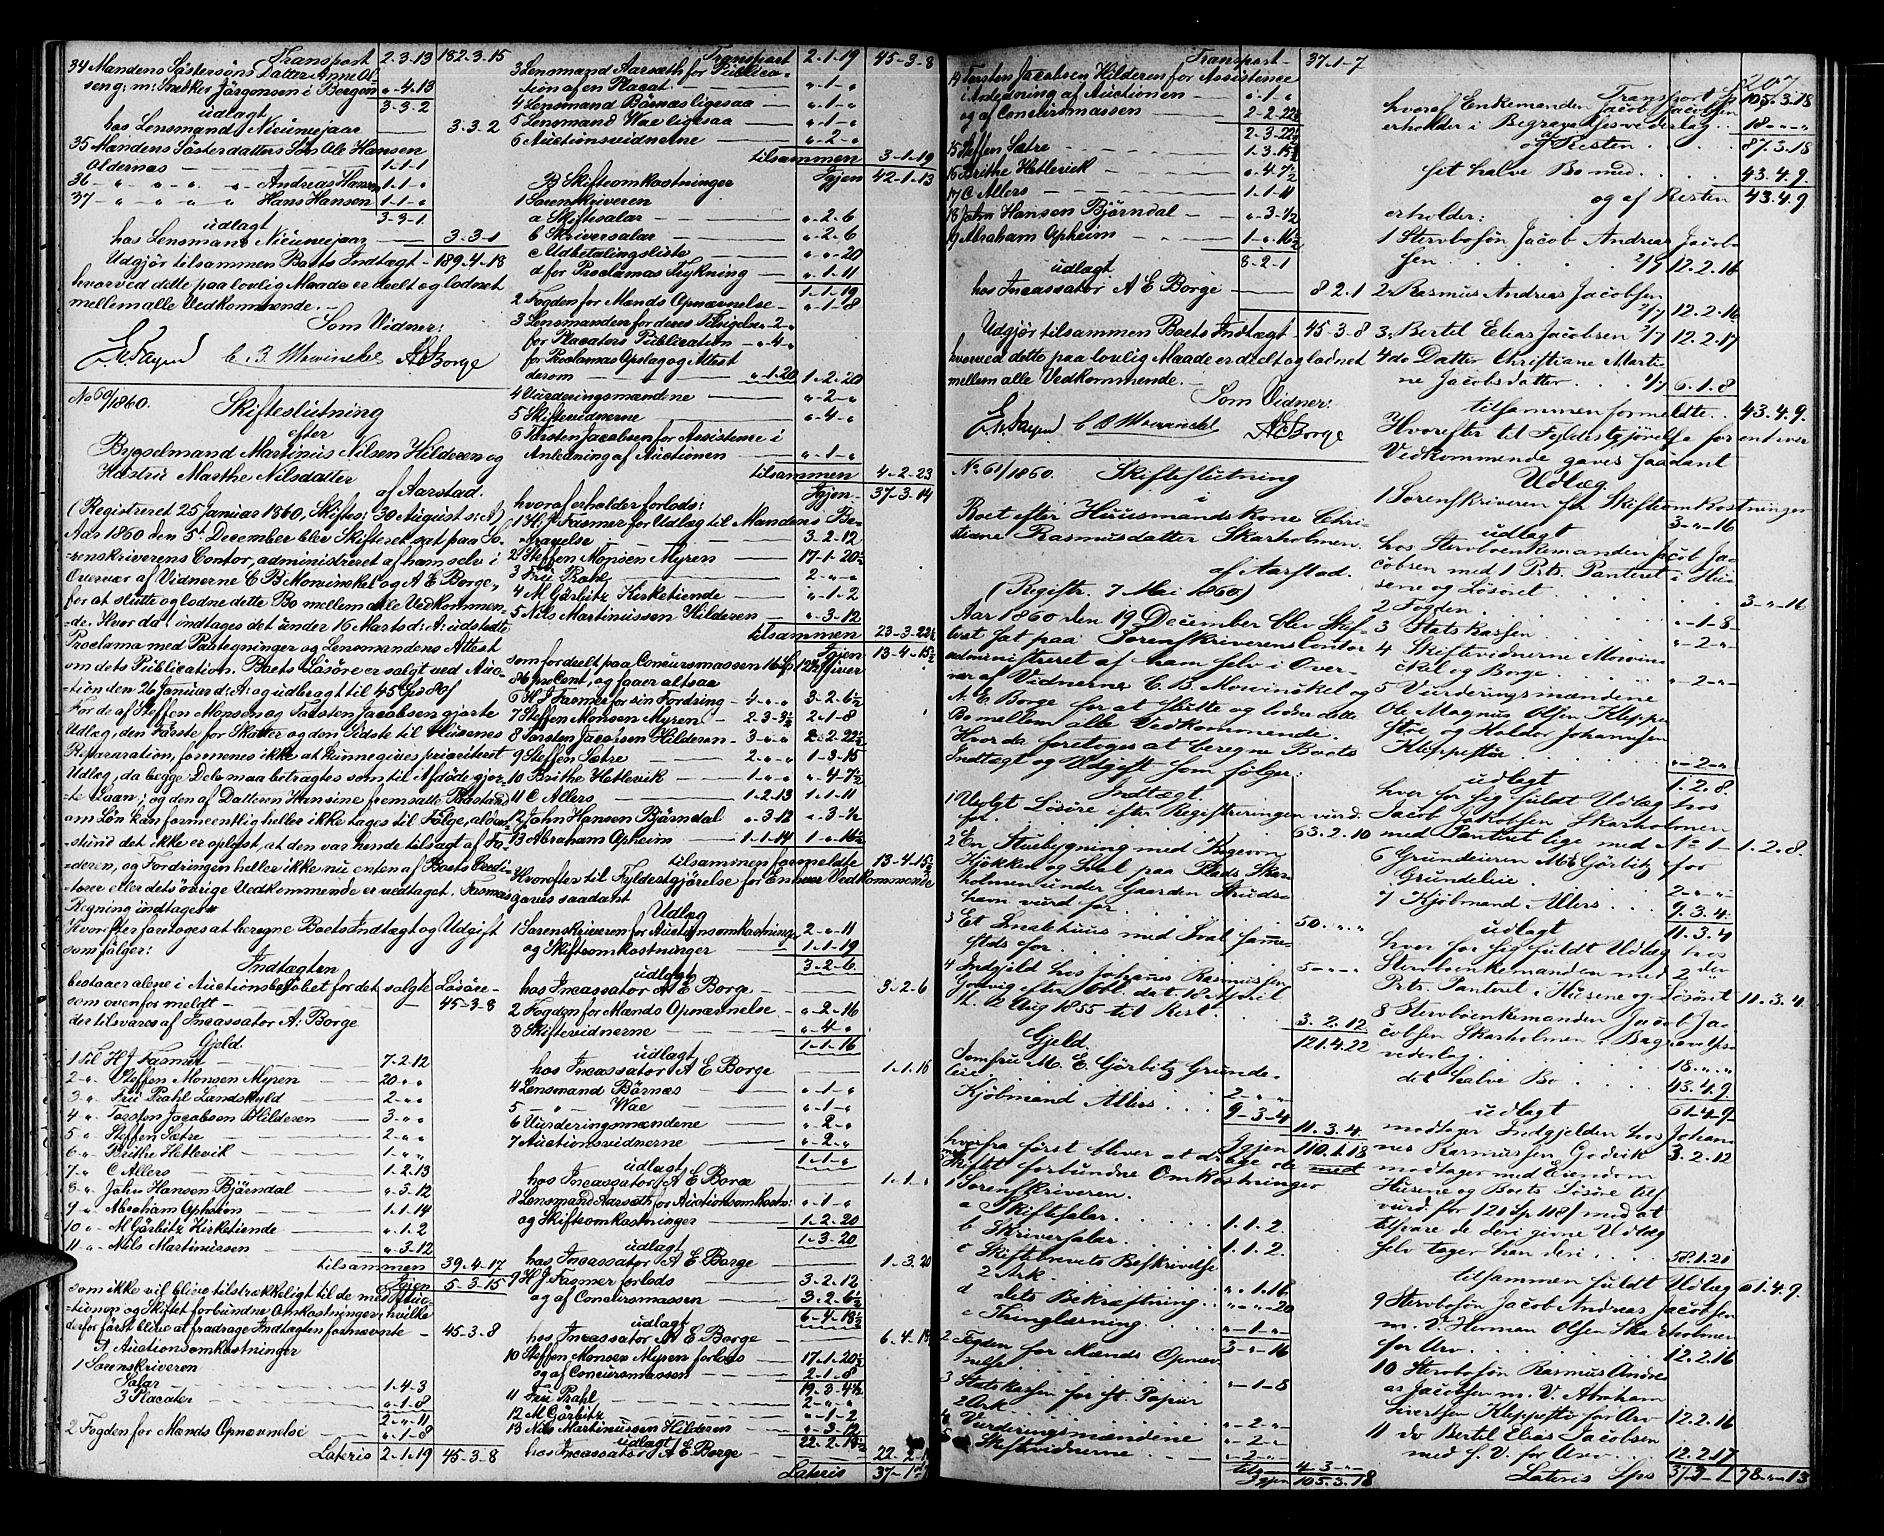 Transport 2-3-13 182-3-15
34 Mandens Söstersöns Datter Anne Ol
seng: m: Snekker Jörgensen i Bergen „-4-13
3-3-2
udlagt
hos Lensmand Nicuniejaar 3-3-2
35 Mandens Sösterdatters Sön Ole Hansen
Oldernæs 1-1-1
36 - „ - „ - „ Andreas Hansen 1-1-„
37 - „ „ „ „ Hans Hansen 1-1-„
3-3-1
udlagt
hos Lensmand Nicuniejaar 3-3-1
Udgjör tilsammen Boets Indtægt 189-4-18
hvorved dette paa lovlig Maade er deelt og lodnet
mellem alle Vedkommende.
Som Vidner:
C. B. Mowinckel AEBorge
No 60/1860. Skifteslutning
efter
Bygselmand Martinus Nilsen Hilderen og
Hustru Marthe Nilsdatter
af Aarstad.
(Registreret 25 Januar 1860, Skiftes: 30 August s: A)
Aar 1860 den 5te December blev Skifteret sat paa So-
renskriverens Contor, administreret af ham selv i
Overvær af Vidnerne C B Mowinckel og A E Borge,
for at slutte og lodne dette Bo mellem alle Vedkommen-
de. Hvor da indtages det under 16 Marts d: A: udstedte
Proclama med Paategninger og Lensmandens Attest
om dets Publication. Boets Lösöre er solgt ved Auc-
tion den 26 Januar d: A: og udbragt til 45 Spd 80 s
For de af Steffen Monsen og Torsten Jacobsen gjorte
Udlæg, den Förste for Skatter og den Sidste til Husenes
Reparation, formenes ikke at kunne gives prioriteret
Udlæg, da begge Dele maa betragtes som til Afdöde gjor-
te Laan; og den af Datteren Hansine fremsatte Paastand
om Lön kan formeentlig heller ikke tages til Fölge, alden-
stund det ikke er oplyst, at den var hende tilsagt af Fa-
deren, og Fordringen heller ikke nu enten af Boets Credi-
torer eller dets övrige Vedkommende er vedtaget.
Regning indtages
Hvorefter foretoges at beregne Boets Indtægt og Udgift
som fölger:
Indtægten
bestaaer alene i Auctionsbelöbet for det solgte Lösöre
som ovenfor meldt 45-3-8
der tilsvares af Incassator A: Borge
Gjeld.
1 Til H J Fasmer 7-2-12
2 - „ Steffen Monsen Myren 20 „ „
3 „ Frü Prahl Landskyld 2-„ „
4 „ Torsten Jacobsen Hilderen 3-„ „
5 „ Steffen Sætre 2-„ „
6 „ Brithe Hetlevik 1-„ „
7 „ C Allers 1-2-13
8 „ John Hansen Björndal „-3-12
9 „ Abraham Opheim 1-1-14
10 „ M Görbitz Kirketiende „-1-2
11 „ Nils Martinussen „-3-12
tilsammen 39-4-17
Igjen 5-3-15
som ikke vil blive tilstrækkeligt til de med Auc-
tionen og Skiftet forbundne Omkostninger, hvilke
derfor först blive at fradrage Indtægten formeente 45-3-8
A Auctionsomkostninger
1 Sorenskriveren
Salær 1-4-3
3 Placater „-1-8
2-„-11
2 Fogden for Mænds Opnævnelse „-1-8
Lateris 2-1-19 45-3-8
Transport 2-1-19 45-3-8
3 Lensmand Aarsæth for Publica-
tion af en Placat „-1-„
4 Lensmand Börnæs ligesaa „-1-„
5 Lensmand Wae ligesaa „-1-„
6 Auctionsvidnerne „-2-„
tilsammen 3-1-19
Igjen 42-1-13
B Skifteomkostninger
1 Sorenskriveren
a Skiftesalær „-2-6
b Skriversalær „-2-6
c Udbetalingsliste „-„-20
d for Proclamas Trykning „-1-11
1-1-19
2 Fogden for Mænds Opnævnelse „-1-8
3 Lensmanden for deres Tilsigelse -2-„
for Placaters Publication „-4-„
for Proclamas Opslag og Attest
derom „-1-20 1-2-20
4 Vurderingsmændene „-2-„
5 Skiftevidnerne „-4-„
6 Torsten Jacobsen for Assistence i
Anledning af Auctionen „-1-„
tilsammen 4-2-23
Igjen 37-3-14
hvoraf erholder forlods:
1 H. J. Fasmer for Udlæg til Mandens Be-
gravelse 3-2-12
2 Steffen Monsen Myren 17-1-20½
3 Frü Prahl 2-„-„
4 M Görbitz Kirketiende „-1-2
5 Nils Martinussen Hilderen „-3-12
tilsammen 23-3-22½
Igjen 13-4-15½
som fordeelt paa Concursmassen 16 12½ giver
86 proCent, og faaer altsaa
6 H J Fasmer for sin Fordring 4-„-„ 3-2-6½
7 Steffen Monsen Myren 2-3-3½ 2-1-8
8 Torsten Jacobsen Hilderen 3-„-„ 2-2-22½
9 Steffen Sætre 2-„-„ 1-3-15
10 Brithe Hetlevik 1-„-„ „-4-7½
11 C Allers 1-2-13 1-1-11
12 John Hansen Björndal „-3-12 „-3-½
13 Abraham Opheim 1-1-14 1-„-16½
tilsammen formeldte 13-4-15½
Hvorefter til Fyldestgjörelse for Enhver Vedkommende
gaves saadant
Udlæg
1 Sorenskriveren for Auctionsomkostninger 2-„-11
og Skifteomkostninger 1-1-19
3-2-6
udlagt
hos Incassator A E Borge 3-2-6
2 Fogden for Mænds Opnævnelse „-2-16
3 Skiftevidnerne „-4-„
1-1-16
udlagt
hos Incassator A E Borge 1-1-16
4 Lensmand Börnæs „-1-„
5 - „ - Wae „-1-„
6 Vurderingsmændene „-2-„
7 Auctionsvidnerne „-2-„
1-1-„
udlagt
hos Incassator A E Borge 1-1-„
8 Lensmand Aarsæth for Auctionsomkostn: „-1-„
og Skifteomkostninger 1-2-20
1-3-20
udlagt
hos Incassator A E Borge 1-3-20
9 H J Fasmer forlods 3-2-12
og af Concursmassen 3-2-6½
6-4-18½
udlagt
hos Incassator A E Borge 6-4-18
10 Steffen Monsen Myren forlods 17-1-20½
og af Concursmassen 2-1-8
19-3-4½
11 Frü Prahl 2-„-„
12 M Görbitz „-1-2
13 Nils Martinussen Hilderen „-3-12
22-2-18½
udlagt
hos Incassator A E Borge 22-2-1
Lateris 37-1-7
Transport 37-1-7
14 Torsten Jacobsen Hilderen for Assistence
i Anledning af Auctionen „-1-„
og af Concursmassen 2-2-22½
2-3-22½
15 Steffen Sætre 1-3-15½
16 Brithe Hetlevik „-4-7½
17 C Allers 1-1-11
18 John Hansen Björndal „-3-½
19 Abraham Opheim 1-„-16½
8-2-1
udlagt
hos Incassator A E Borge 8 2-1
Udgjör tilsammen Boets Indtægt 45-3-8
hvorved dette paa lovlig Maade er deelt og lodnet
mellem alle Vedkommende.
Som Vidner:
C B Mowinckel AEBorge
No 61/1860. Skifteslutning
i
Boet efter Huusmandskone Chri-
stiane Rasmusdatter Skarholmen.
af Aarstad.
(Registr. 7 Mai 1860)
Aar 1860 den 19 December blev Skif-
teret sat paa Sorenskriverens Contor
administreret af ham selv i Over-
vær af Vidnerne C. B. Mowinckel og
A. E. Borge for at slutte og lodne dette
Bo mellem alle Vedkommende.
Hvor da foretoges at beregne Boets
Indtægt og Udgift som fölger:
Indtægt.
1 Usolgt Lösöre efter Registreringen vurd.
for 63. 2. 10
2 En Stuebygning med Ildgrovn
Kjökken og Sval paa Plads Skar-
holmen under Gaarden Struds-
havn vurd for 50. „ „
3 Et Smalehuus med Sval samme-
steds for 5-„-„
4 Indgjeld hos Johanes Rasmussen
Godvig efter Obl. dat. 10 April
tl. 2 Aug 1855 til Rest 3. 2. 12
121. 4. 22
Gjeld.
Jomfru M. E. Görbitz Grunde-
leie 2-„-„
Kjöbmand Allers 9-3-4
11. 3. 4
Igjen 110. 1. 18
hvorfra först bliver at drage de med
Skiftet forbundne Omkostninger
1 Sorenskriveren.
a Skiftesalær 1. 1. 2
b Skriversalær 1. 1. 2
c Skiftebrevets Beskrivelse
2 Ark „. 1. 16
d dets Bekræftning „. „. 20
e Thinglæsning „-1-„
3-„-16
2 Fogden for Mænds Opnæv-
nelse „-1-8
3 Statskassen for st. Papiir
2 Ark „-2-„
4 Vurderingsmændene „-2-„
5 Skiftevidnerne „-2-„
tils. 4-3-„
Igjen 105. 3. 18
207.
Transport Sp 105. 3. 18
hvoraf Enkemanden Jacob Jacobsen
erholder i Begravelsesvederlag 18 „ „
af Resten 87. 3. 18
sit halve Bo med 43. 4. 9
og af Resten 43. 4. 9
erholder:
1 Stervbosön Jacob Andreas Jacob-
sen 2/7 12. 2. 16
2 Rasmus Andreas Jacobsen
2/7 12. 2. 16
3. Bertel Elias Jacobsen 2/7 12. 2. 17
4 do Datter Christiane Marti-
ne Jacobsdatter 1/7 6. 1. 8
tilsammen formeldte 43. 4. 9.
Hvorefter til Fyldestgjörelse for enhver
Vedkommende gaves saadant
Udlæg
1 Sorenskriveren for Skifteomkostninger
3-„-16
udlagt
hos Stervboenkemanden Jacob Ja-
cobsen med 1 Prts. Panteret i Hu-
sene og Lösöret 3-„-16
2 Fogden „-1-8
3 Statskassen „-2-„
4 Skiftevidnerne Mowin-
ckel og Borge „-2-„
5 Vurderingsmændene
Ole Magnus Olsen Kleppe-
stöe, og Haldor Johannesen
Kleppestöe „-2-„
1. 2. 8
udlagt
hver for sig fuldt Udlæg hos
Jacob Jakobsen Skarholmen
med Panteret lige med No 1 1. 2. 8.
6 Grundeieren M E Görbitz for
Grundeleie 2-„-„
7 Kjöbmand Allers 9. 3. 4.
11. 3. 4
udlagt
hver for sig fuldt Udlæg hos
Stervboenkemanden med 2 den
Prts. Panteret i Husene og Lösöret 11. 3. 4
8 Stervboenkemanden Jacob Ja-
cobsen Skarholmen i Begravelses-
vederlag 18. „. „
det halve Bo 43. 4. 9
61. 4. 9
udlagt
modtager Indgjelden hos Johan-
nes Rasmussen Godvik 3. 2. 12
modtager med Eiendom
Husene og Boets Lösöre tilf
vurd. for 121 Sp 118 s mod at
tilsvare de deri givne Udlæg
selv tager han deri 58. 1. 21
tilsammen fuldt Udlæg 61. 4. 9.
9 Stervbosön Jacob Andreas Jacobsen
m. V. Herman Olsen Skarholmen
for Arv 12. 2. 16
10 Stervbosön Rasmus Andre-
as Jacobsen m. V. Abraham
Sivertsen Kleppestö for Arv 12. 2. 16
11 do Bertel Elias Jacobsen
med f. V. for Arv 12. 2. 17
Lateris Sps 37. 3-1 78-„-13